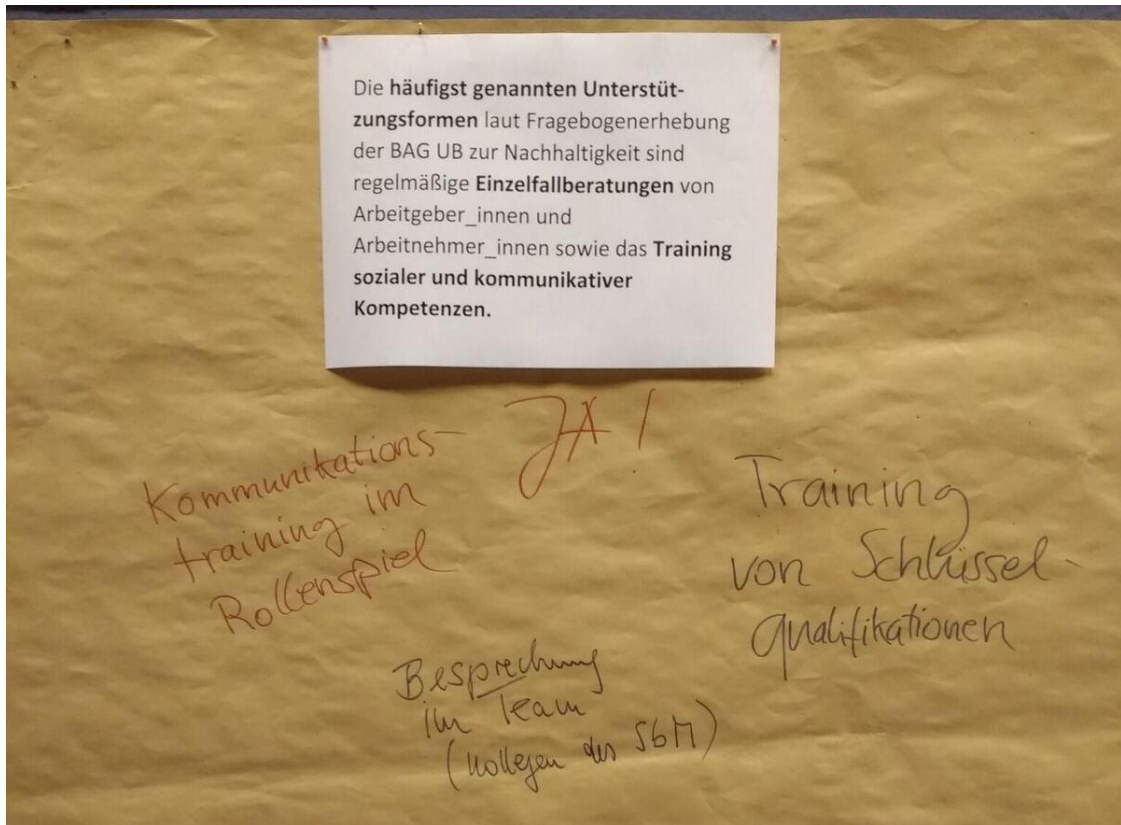 Die häufigst genannten Unterstüt-
zungsformen laut Fragebogenerhebung
der BAG UB zur Nachhaltigkeit sind
regelmäßige Einzelfallberatungen von
Arbeitgeber_innen und
Arbeitnehmer_innen sowie das Training
sozialer und kommunikativer
Kompetenzen.
JA!
Kommunikations-
training im
Rollenspiel
Training
von Schlüssel-
qualifikationen
Besprechung
im Team
(Kollegen des SbM)